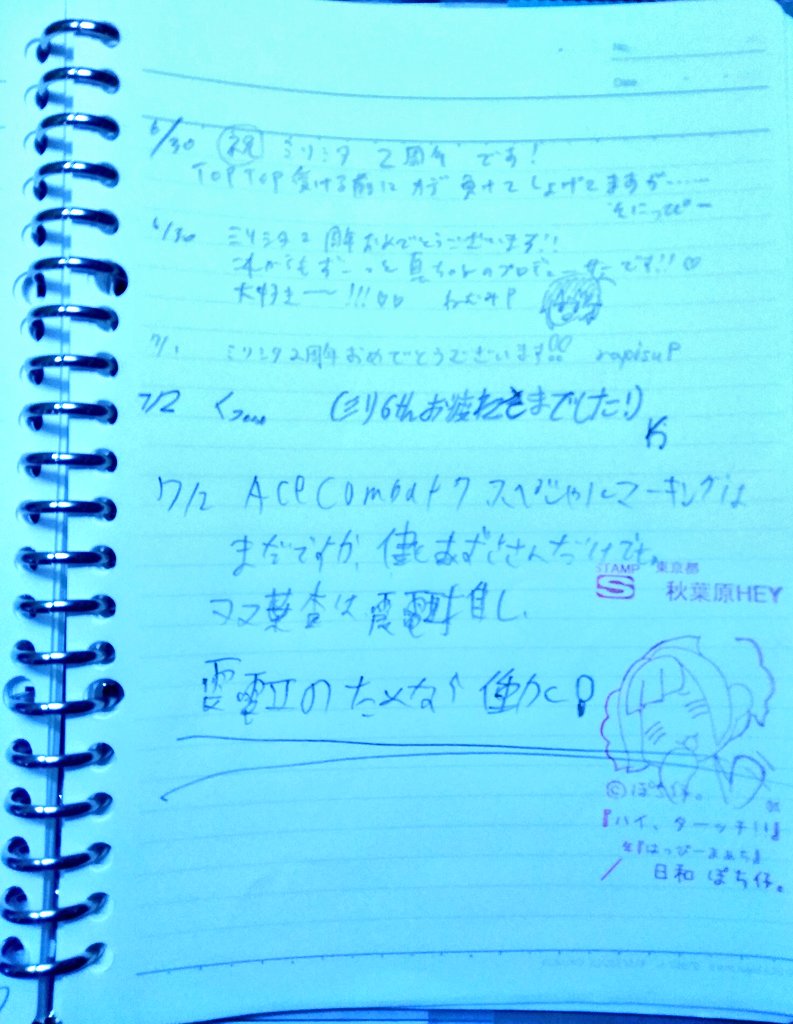 No.
Date
6/30 ㊗ ミリシタ 2周年 です!
TOP TOP 受ける前に オデ 負けて しょげてますが……
そにっぴー
6/30 ミリシタ2周年おめでとうございます!!
これからもずーっと真ちゃんのプロデューサーです!!♡
大好き〜!!!♡♡ ねむみP
7/1 ミリシタ2周年おめでとうございます!! rapisuP
7/2 くっ…… (ミリ6thお疲れさまでした!)
7/2 Ace Combat 7 スペシャルマーキングは
まだですか、 あずささんだけでも。
推し、
のためなら働く!
STAMP 東京都
S 秋葉原HEY
©ぽち仔。
『ハイ、ターッチ!!』
『はっぴーまぁち』
日和 ぽち仔。